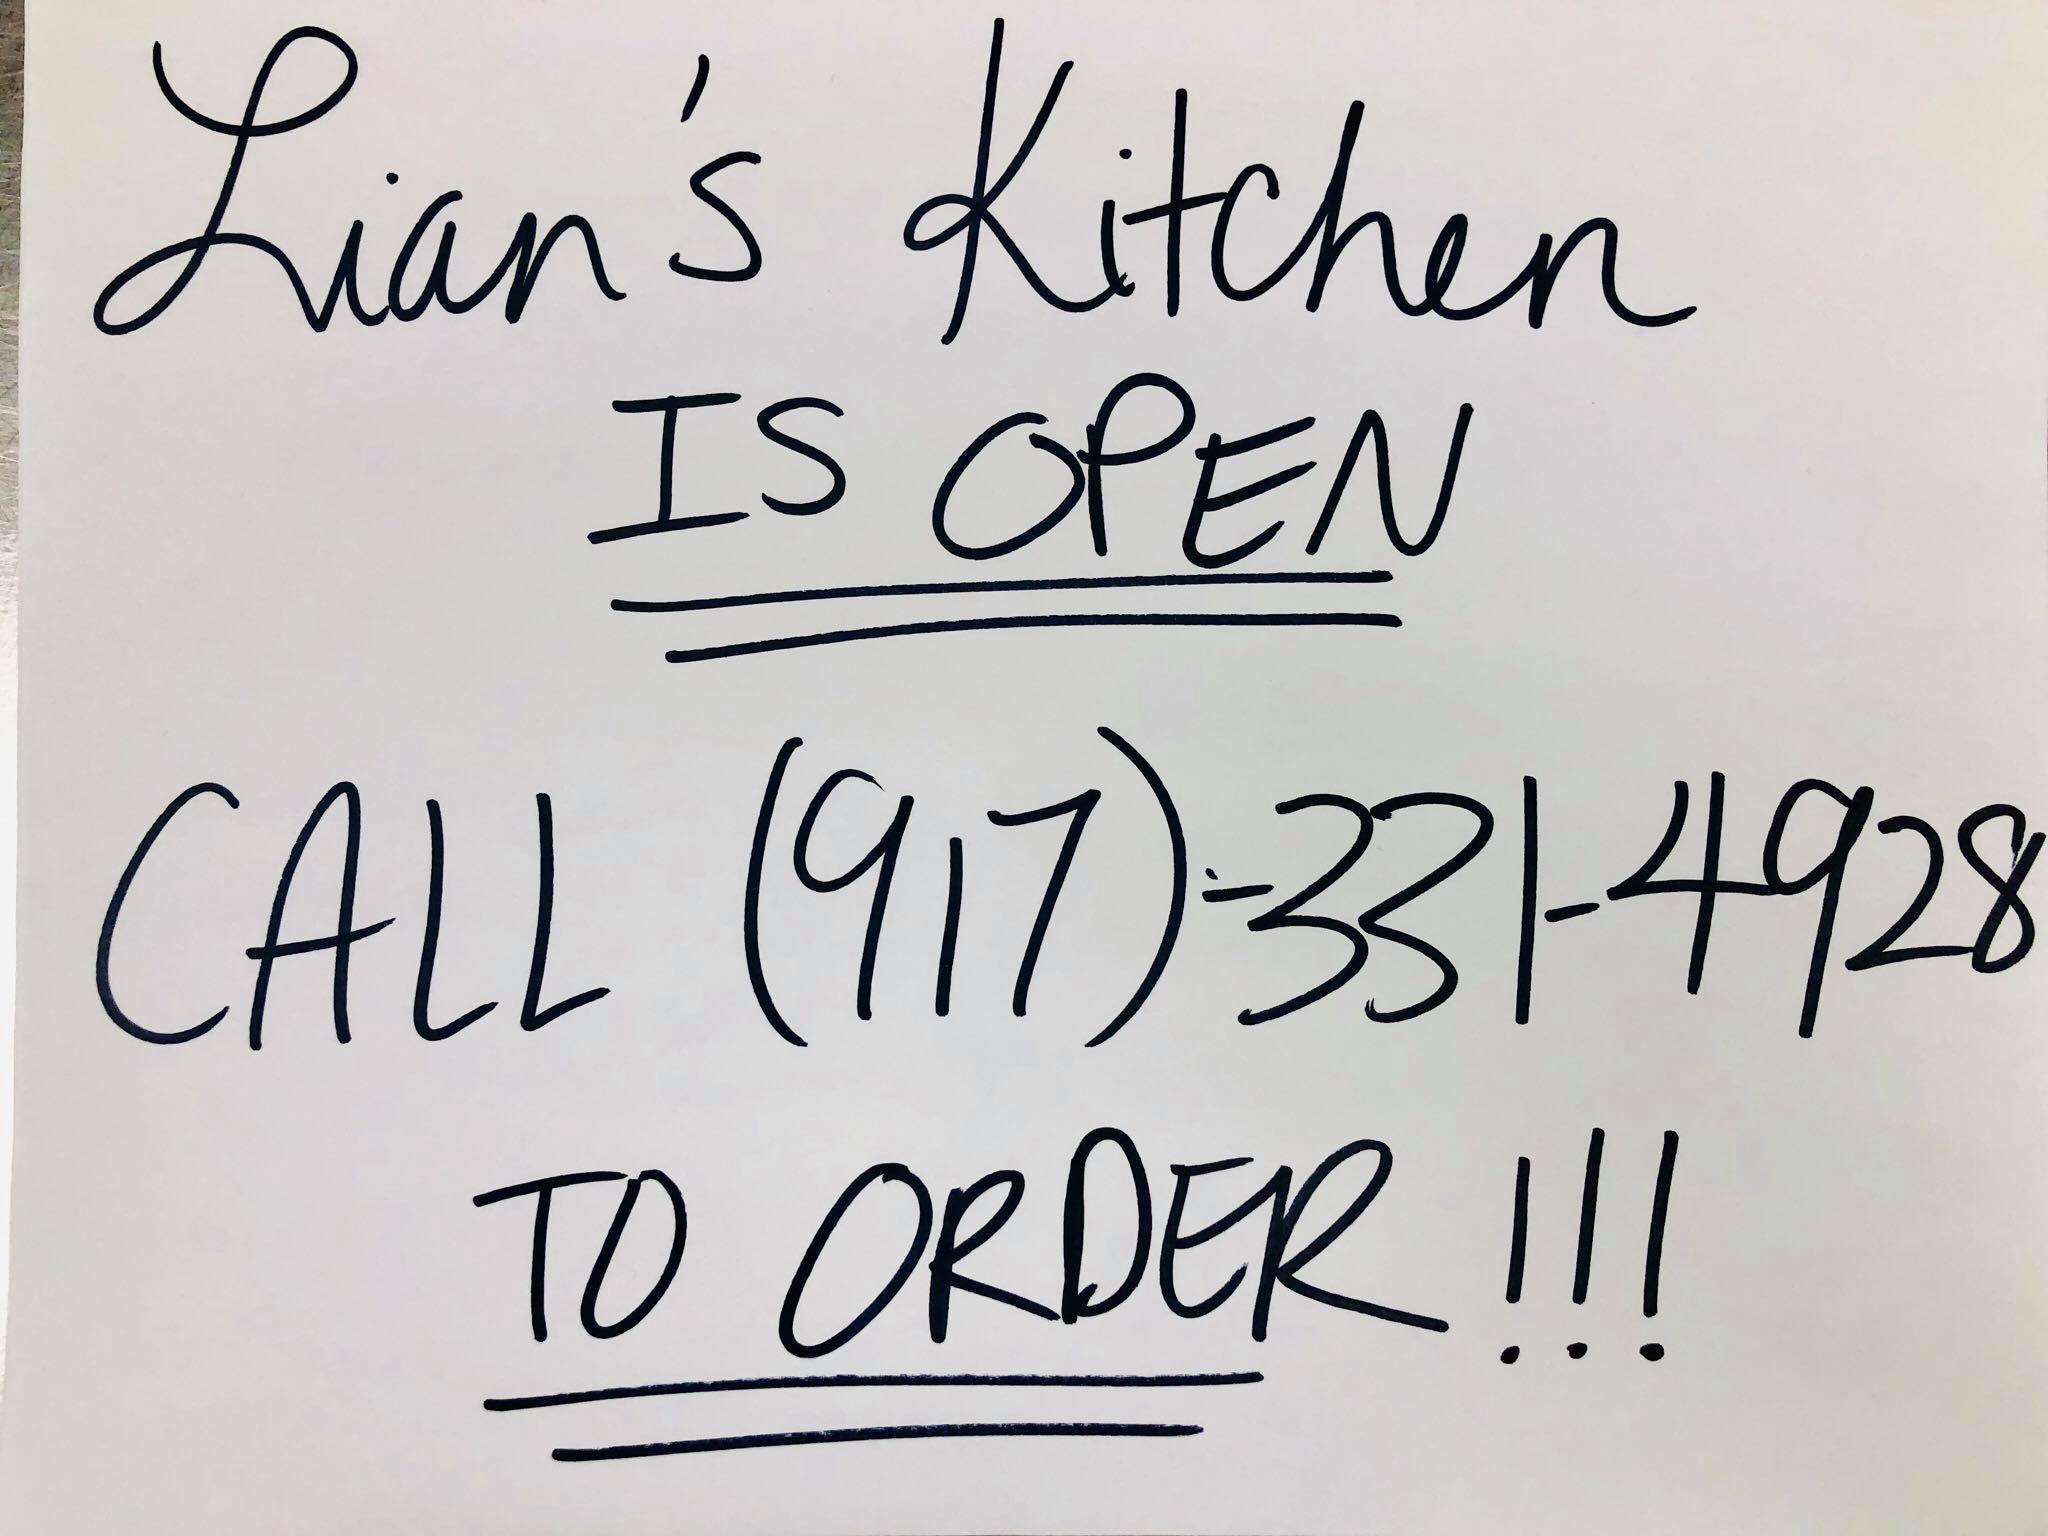 Lian's Kitchen
IS OPEN
CALL (917)-331-4928
TO ORDER!!!